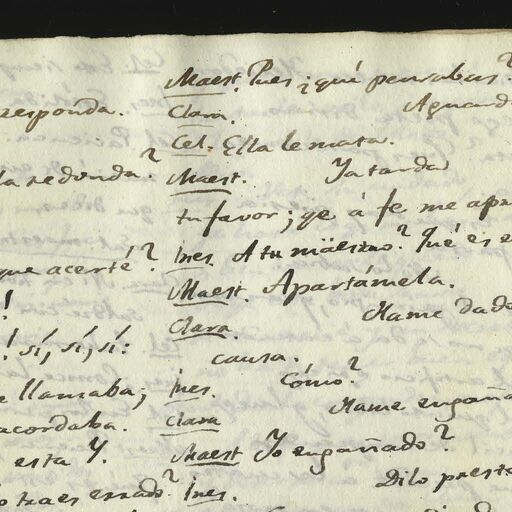 responda.
la redonda?
que acerté?
!
! sí, sí, sí:
llamaba;
acordaba.
esta Y.
traes errado?
Maest. Pues ¿qué pensabas?
Clara. Aguard
Cel. Ella le mata.
Maest. Ya tarda
tu favor; qe á fe me
Ines. A tu maestro? Qué es e
Maest. Apartámela.
Clara. Hame dado
causa.
Ines. Cómo?
Clara Hame engaña
Maest Yo engañado?
Ines. Dilo preste